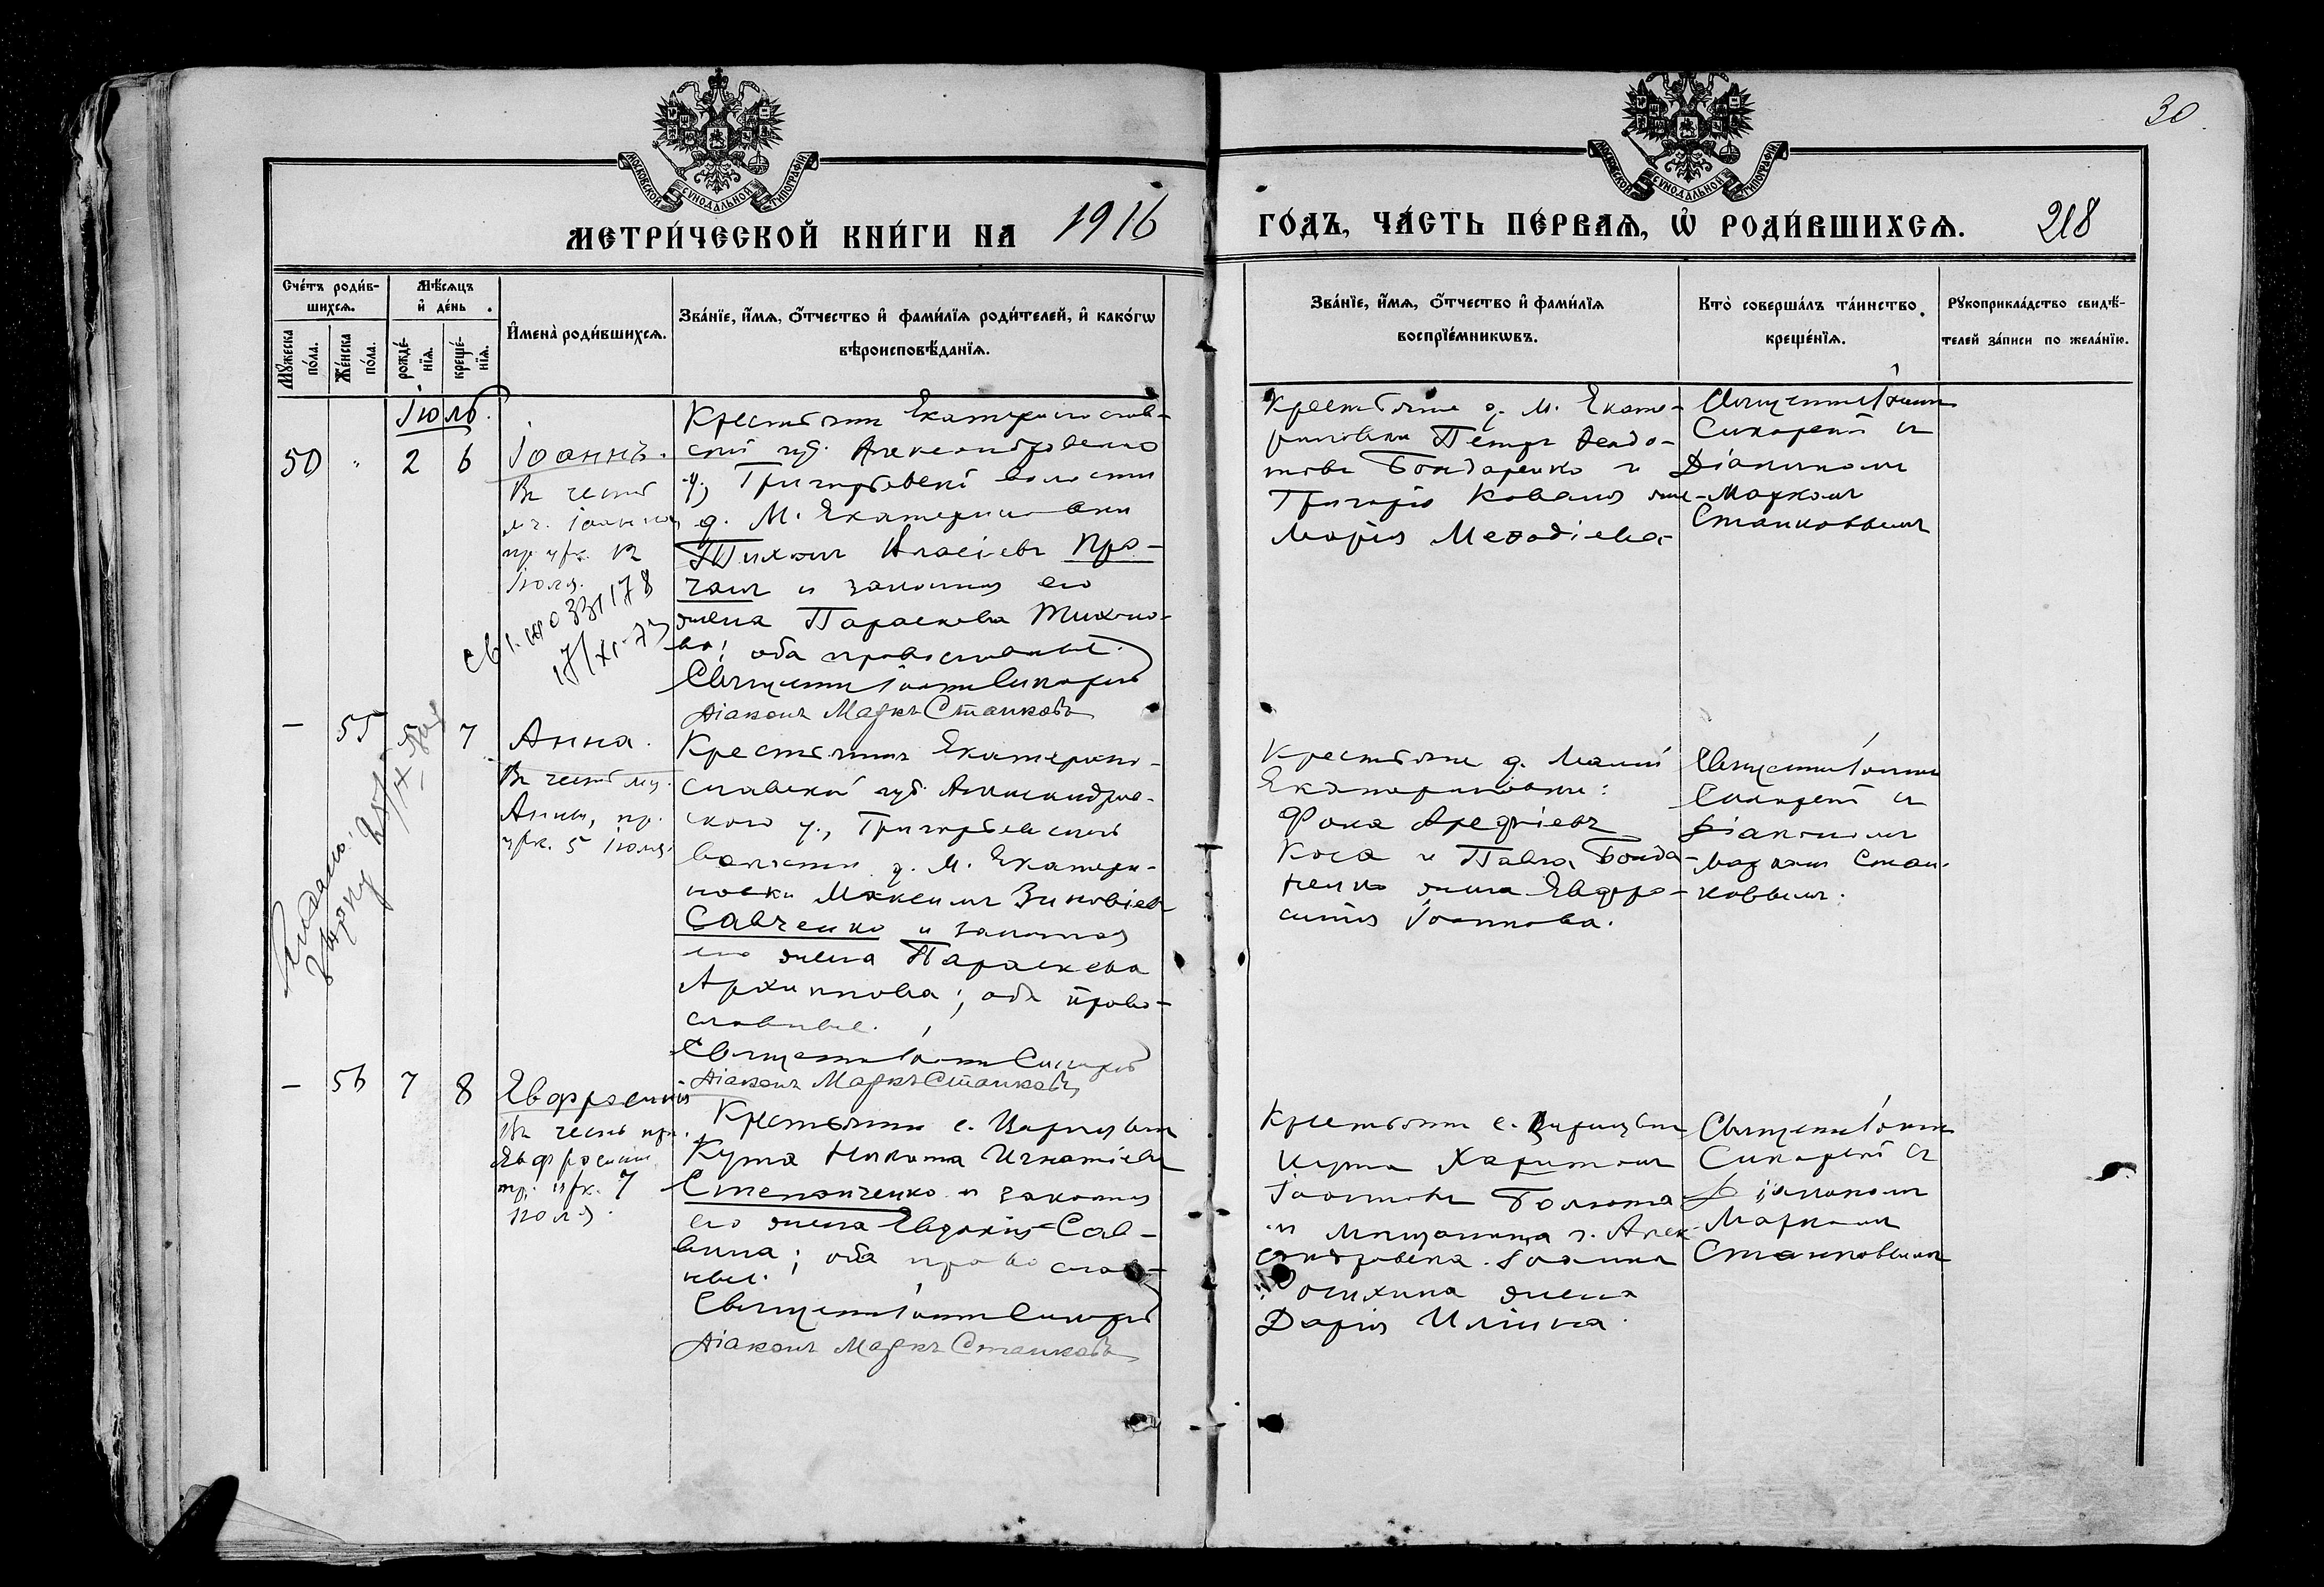 30
МОСКОВСКОЙ СѴНОДАЛЬНОЙ ТИПОГРАФІИ
МОСКОВСКОЙ СѴНОДАЛЬНОЙ ТИПОГРАФІИ
МЕТРИ́ЧЕСКОЙ КНИ́ГИ НА 1916
ГО́ДЪ, ЧА́СТЬ ПЕ́РВАѦ, Ѽ РОДИ́ВШИХСѦ. 218
Сче́тъ роди́в-
шихсѧ.
Мꙋжеска
по́ла.
Же́нска
по́ла.
Мѣ́сѧцъ
и҆ де́нь.
рожде́-
нїѧ.
креще́-
нїѧ.
И҆мена̀ роди́вшихсѧ.
Зва́нїе, и҆́мѧ, ѻ҆́тчество и҆ фами́лїѧ роди́телей, и҆ како́гѡ
вѣроисповѣ́данїѧ.
Зва́нїе, и҆́мѧ, ѻ҆́тчество и҆ фами́лїѧ
воспрїе́мникѡвъ.
Кто̀ соверша́лъ та́инство
креще́нїѧ.
Рꙋкоприкла́дство свидѣ́-
телей за́писи по жела́нїю.
Іюль.
50 " 2 6
Іоаннъ.
Въ честь
мч. Іоанна,
пр. црк.
Іюля.
17/XI-73
Крестьянинъ Екатеринослав-
ской губ. Александровскаго
у., Григорьевской волости
д. М. Екатериновки
Тихонъ Власіевъ Про-
чанъ и законная его
жена Параскева Тихоно-
ва; оба православные.
Священникъ Іоаннъ Сикорскій
Діаконъ Маркъ Станковъ
Крестьяне д. М. Екате-
риновки Петръ Ѳеодо-
товъ Бондаренко и
Григорія Коваля жена
Марія Меѳодіева
Священникъ Іоаннъ
Сикорскій съ
Діакономъ
Маркомъ
Станковымъ
— 55 5 7
Анна.
Въ честь мц.
Анны, пр.
црк. 5 Іюля.
Крестьянинъ Екатерино-
славской губ. Александров-
скаго у., Григорьевской
волости д. М. Екатери-
новки Максимъ Зиновіевъ
Савченко и законная
его жена Параскева
Архиппова; оба право-
славные.
Священникъ Іоаннъ Сикорскій
Діаконъ Маркъ Станковъ
Крестьяне д. Малой
Екатериновки:
Фока
Коса и Павла Бонда-
ренко жена Евфро-
синія Іоаннова.
Священникъ Іоаннъ
Сикорскій съ
Діакономъ
Маркомъ Стан-
ковымъ.
— 56 7 8
Евфросинія
Въ честь пр.
Евфросиніи
пр. црк. 7
Іюля.
Крестьянинъ с.
Кута Никита Игнатіевъ
Степанченко и законная
его жена Евдокія Сав-
вина; оба православ-
ные.
Священникъ Іоаннъ Сикорскій
Діаконъ Маркъ Станковъ
Крестьянинъ с.
Кута Харитонъ
Іоанновъ Болюта
и мѣщанина г. Алек-
сандровска Іоанна
жена
Дарія Ильина.
Священникъ Іоаннъ
Сикорскій съ
Діакономъ
Маркомъ
Станковымъ